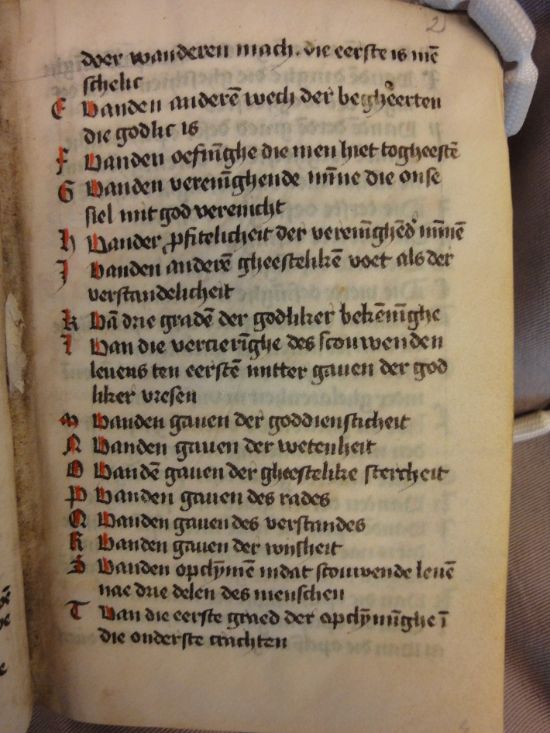 2
doer wanderen mach. die eerste is mē
schelic
E Vanden anderē wech der begheerten
die godlic is
F Vanden oefnīghe die men hiet togheestē
G Vanden verenīghende mīne die onse
siel mit god verenicht
h Vander profitelicheit der verenīghēder mīnen
J Vanden anderē gheestelikē voet als der
verstandelicheit
k Vā drie gradē der godliker bekēnīghe
l Van die vercierīghe des scouwenden
levens ten eerstē mitter gaven der god
liker vresen
m Vanden gaven der goddiensticheit
N Vanden gaven der wetenheit
O Vandē gaven der gheestelike stercheit
P Vanden gaven des rades
Q Vanden gaven des verstandes
R Vanden gaven der wijsheit
S Vanden opclȳmen indat scouwende levē
nae drie delen des menschen
T Van die eerste graed der opclȳmīghe ī
die onderste crachten